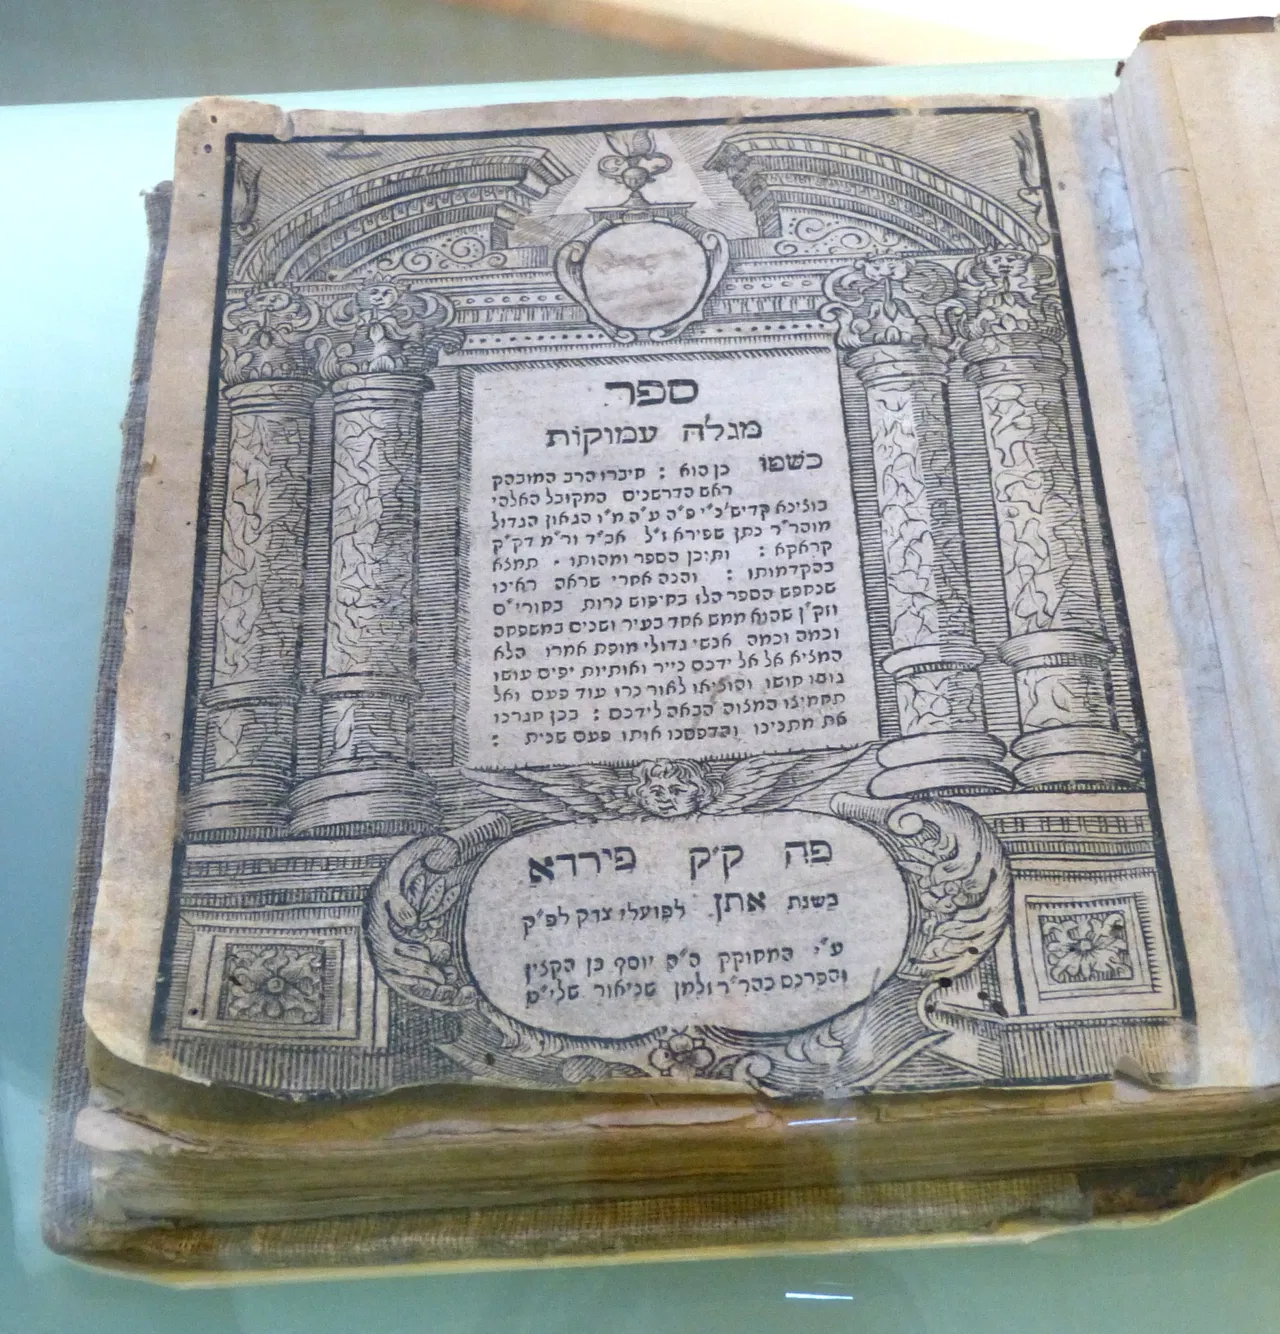 ספר
מגלה עמוקות
כשמו כן הוא : חיברו הרב המובהק
ראש הדרשנים המקובל האלהי
בוצינא קדיש' כ"י פ"ה ע"ה מ"ו הגאון הגדול
מוהר"ר נתן שפירא ז"ל אב"ד ור"מ דק"ק
קראקא : ותיכן הספר ומהותו . תמצא
בהקדמותו : והנה אחרי שראה ראינו
שנחפש הספר הלז בחיפוש נרות בחורי"ם
שהוא ממש אחד בעיר ושנים במשפחה
וכמה וכמה אנשי גדולי מופת אמרו הלא
המציא אל אל ידכם נייר ואותיות יפים עושו
חושו והוציאו לאור נרו עוד פעם ואל
תחמיצו המצוה הבאה לידכם : בכן חגרנו
את מתנינו והדפסנו אותו פעם שנית :
פה ק"ק פיורדא
בשנת אתן לפועלי צדק לפ"ק
ע"י המחוקק ה"ה יוסף בן הקצין
והפרנס כהר"ר זלמן שניאור שלי"ט